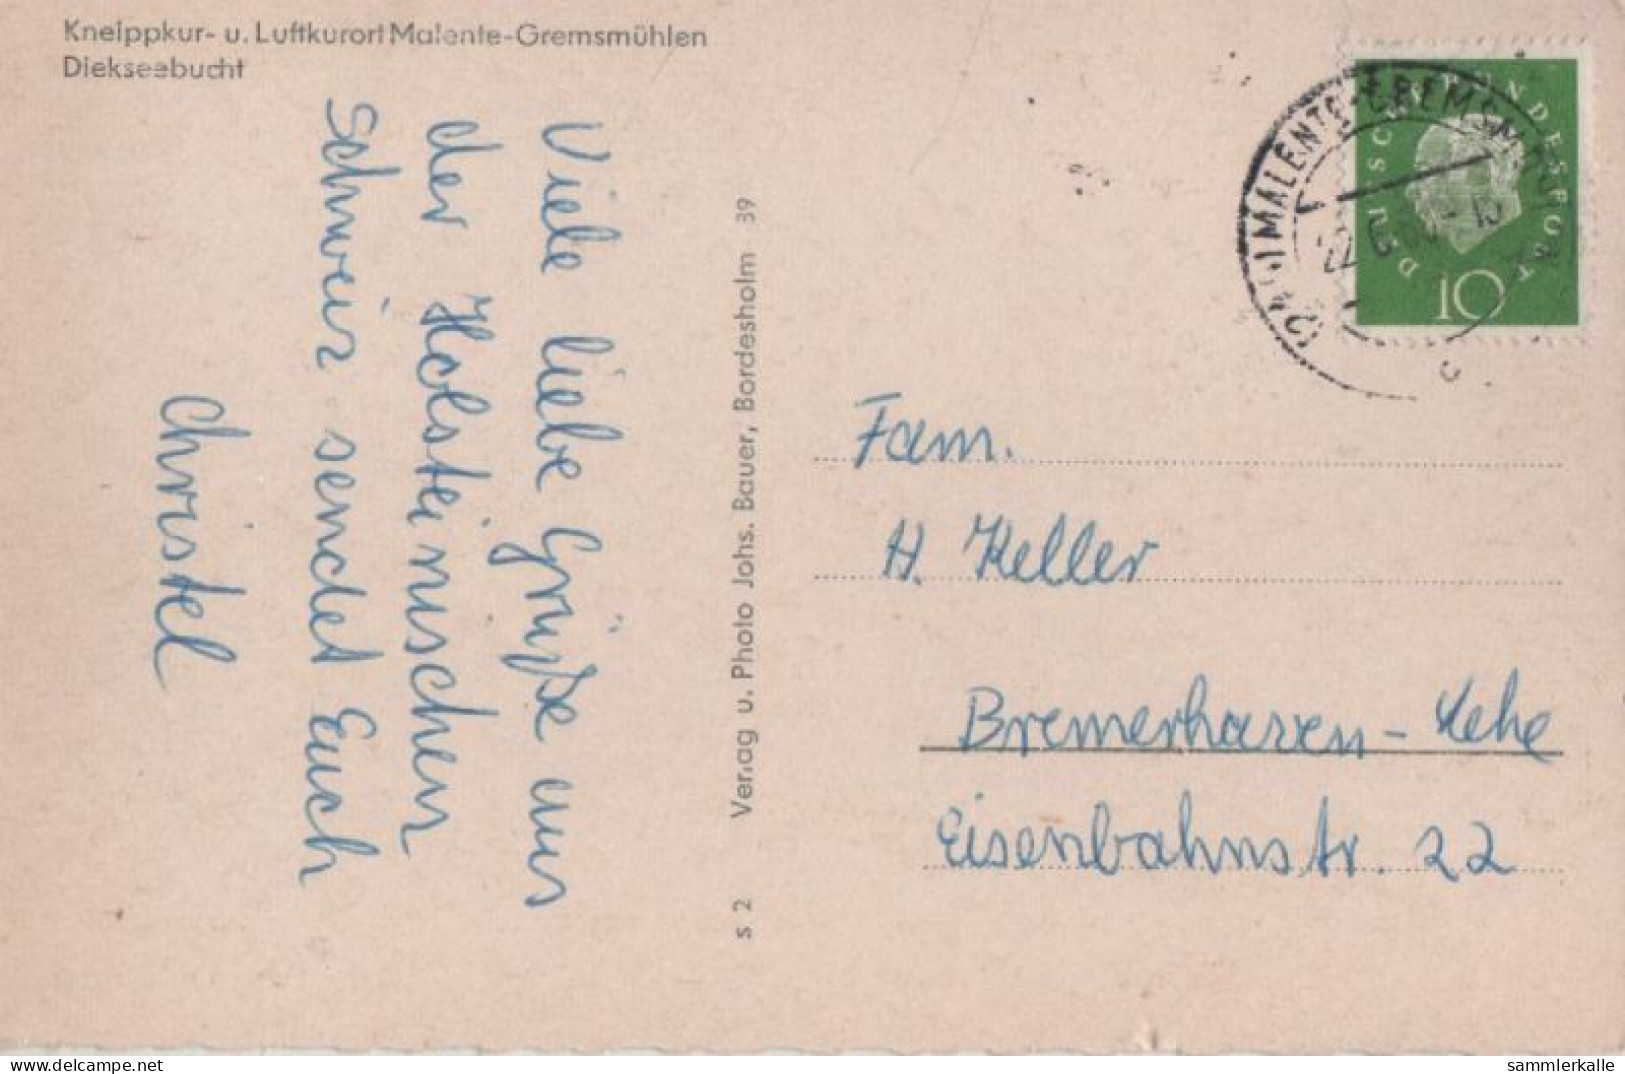 Kneippkur- u. Luftkurort Malente-Gremsmühlen
Diekseebucht
Viele liebe Grüße aus
der Holsteinischen
Schweiz sendet Euch
Christel
s 2 Verlag u. Photo Johs. Bauer, Bordesholm 39
DEUTSCHE BUNDESPOST
10
MALENTE-GREMSMÜHLEN
Fam.
H. Keller
Bremerhaven-Lehe
Eisenbahnstr. 22
delcampe.net
sammlerkalle